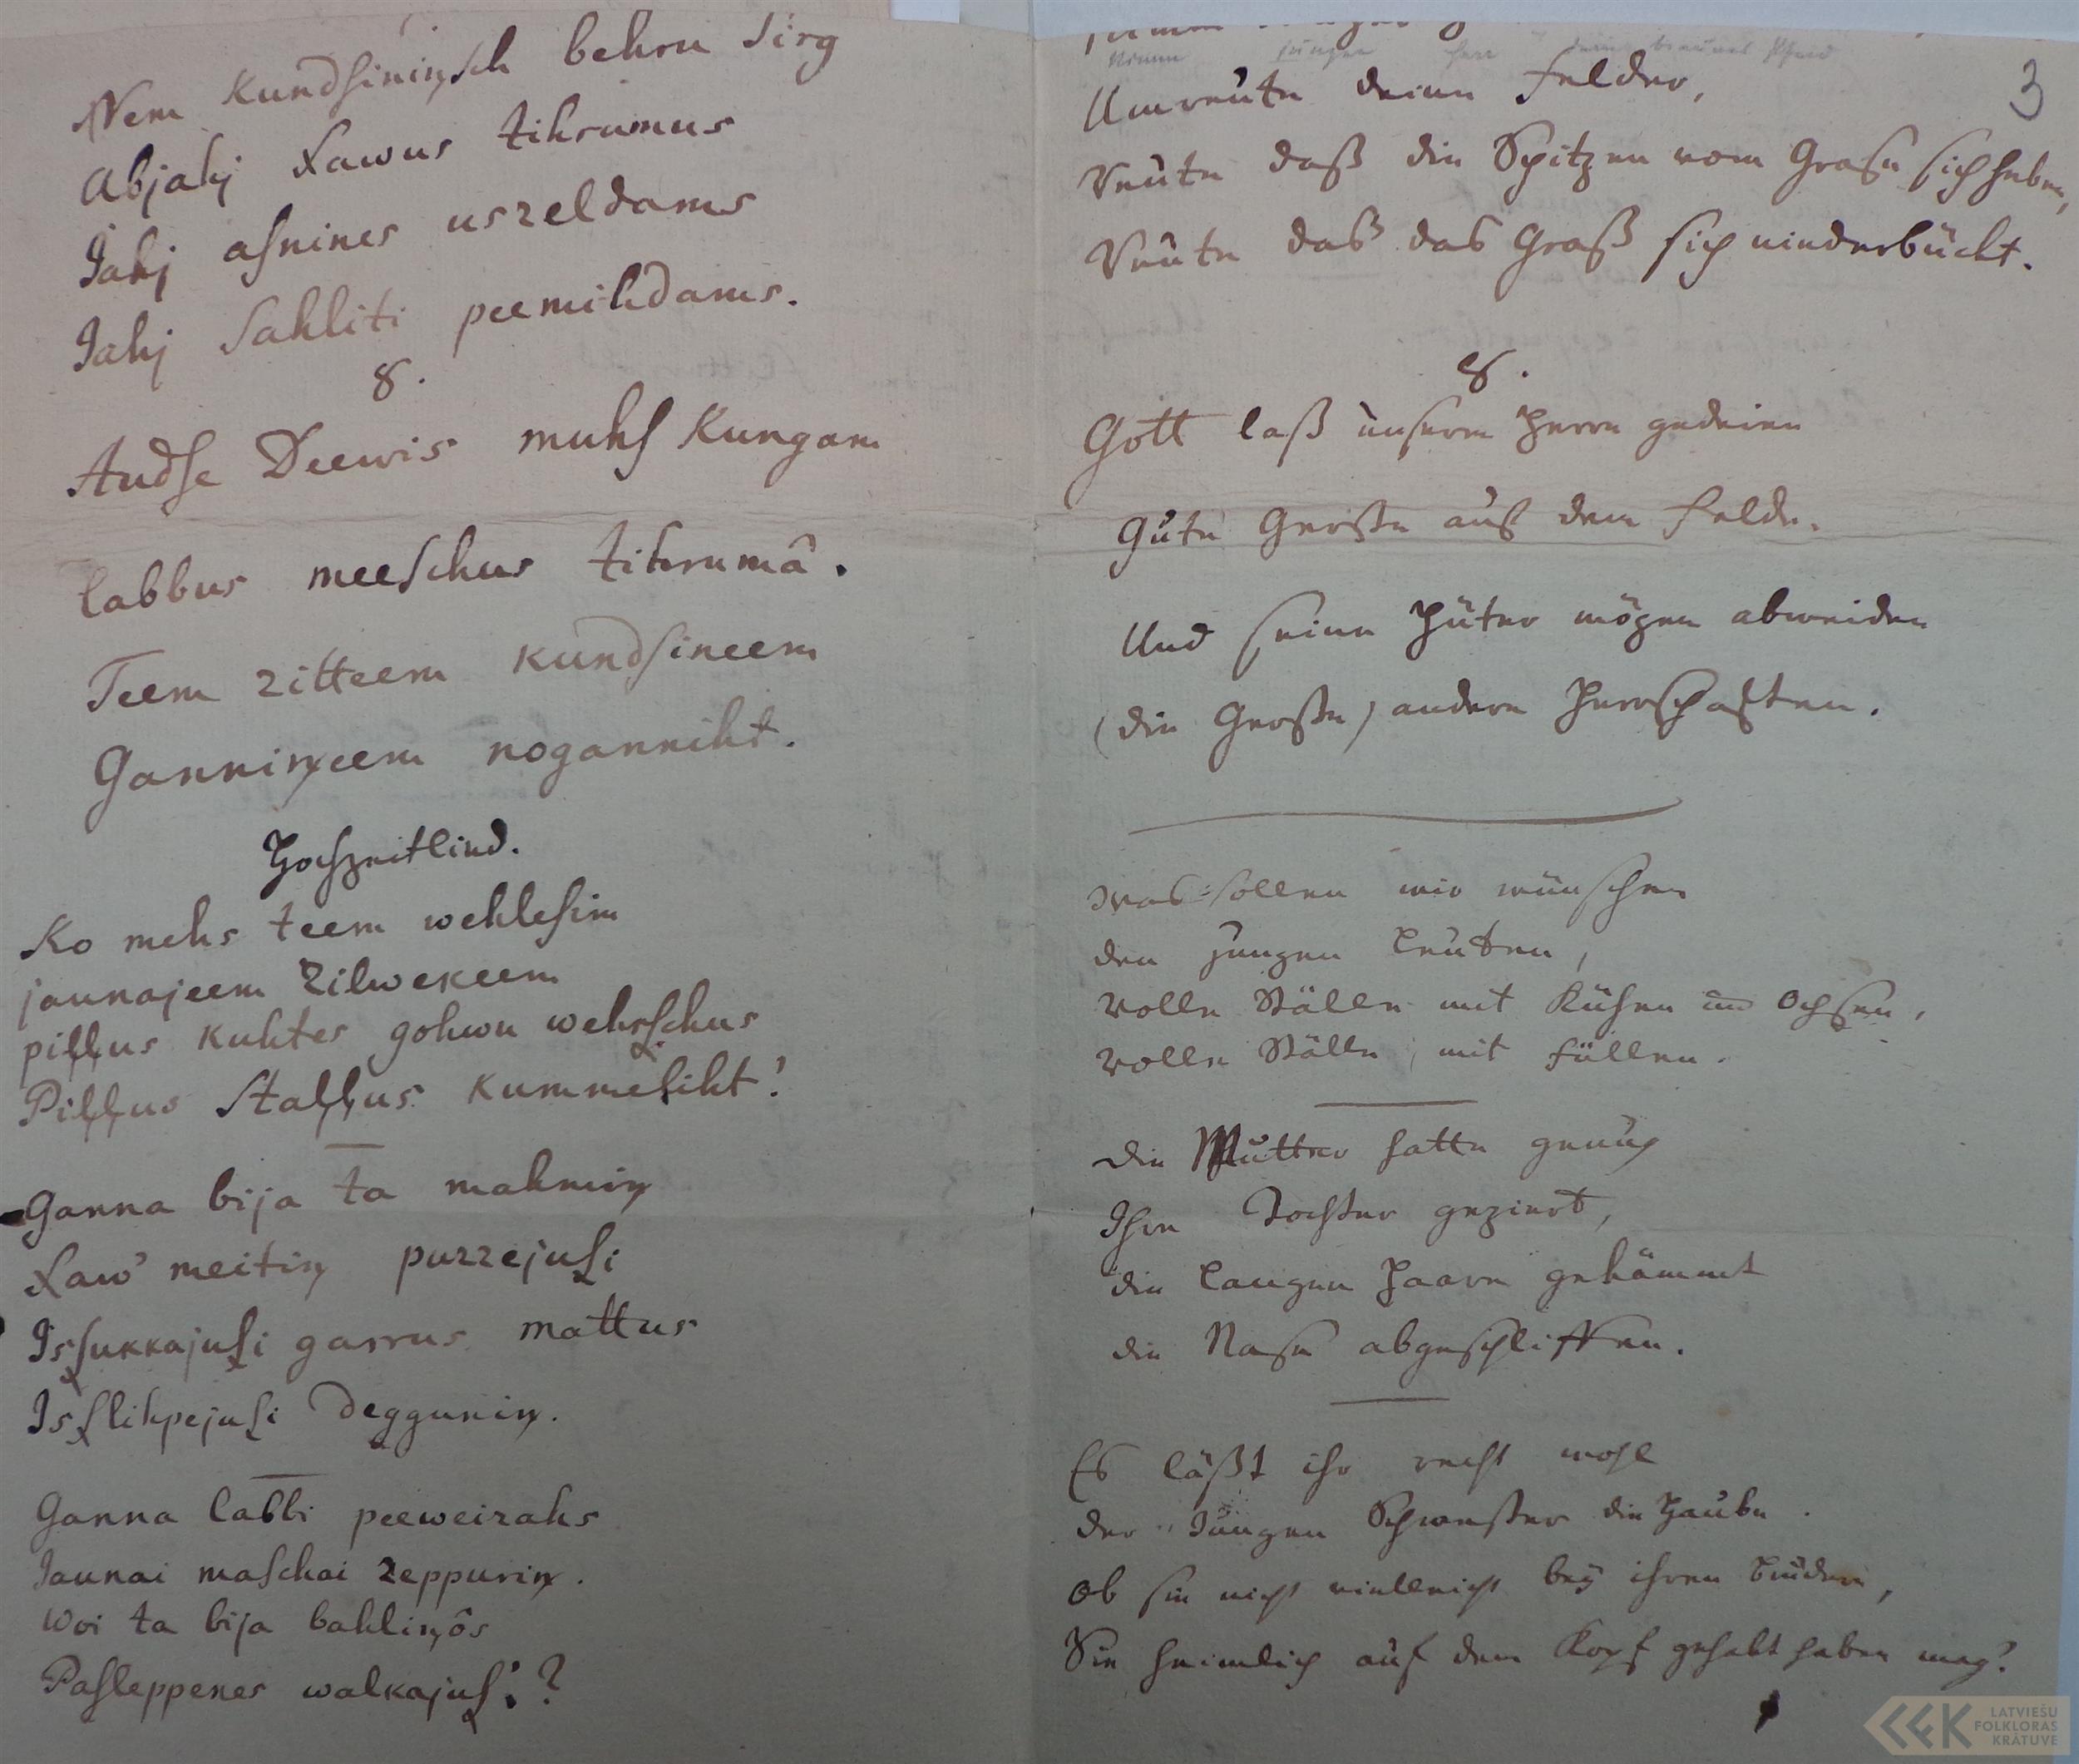 Nem kundsininsch behru sirg
Abjahj sawus tihrumus
Jahj asnines uszeldams
Jahj sahliti peemihdams.
8.
Audse Deewis muhs Kungam
labbus meeschus tihrumâ.
Teem zitteem kundsineem
Ganniņeem noganniht.
Hochzeitlied.
Ko mehs teem wehlesim
jaunajeem Zilwekeem
piļļus kuhtes gohwu wehrschus
Piļļus staļļus kummeliht!
Ganna bija ta mahmiņ
saw' meitiņ puzzejusi
Issukkajusi garrus mattus
Isslihpejusi degguniņ.
Ganna labbi peeweizahs
Jaunai maschai zeppuriņ.
Woi ta bija bahliņôs
Pasleppenes walkajusi?
Nimm junger Herr dein braunes Pferd
3
Umreute deine Felder,
Reute daß die Spitzen vom Grase sich heben,
Reute daß das Graß sich niederbückt.
8.
Gott laß unserm Herrn gedeien
Gute Gerste auf dem Felde.
Und seine Hüter mögen abweiden
(die Gerste) andern Herrschaften.
Was sollen wir wünschen
den jungen Leuten,
volle Ställe mit Kühen und Ochsen,
volle Ställe, mit Füllen.
Die Mutter hatte genug
Ihre Tochter geziert,
die langen Haare gekämmt
die Nase abgeschliffen.
Es läßt ihr recht wohl
der jungen Schwester die Haube.
Ob sie nicht vielleicht bey ihren Brüdern,
Sie heimlich auf dem Kopf gehabt haben mag?
LATVIEŠU
FOLKLORAS
KRĀTUVE